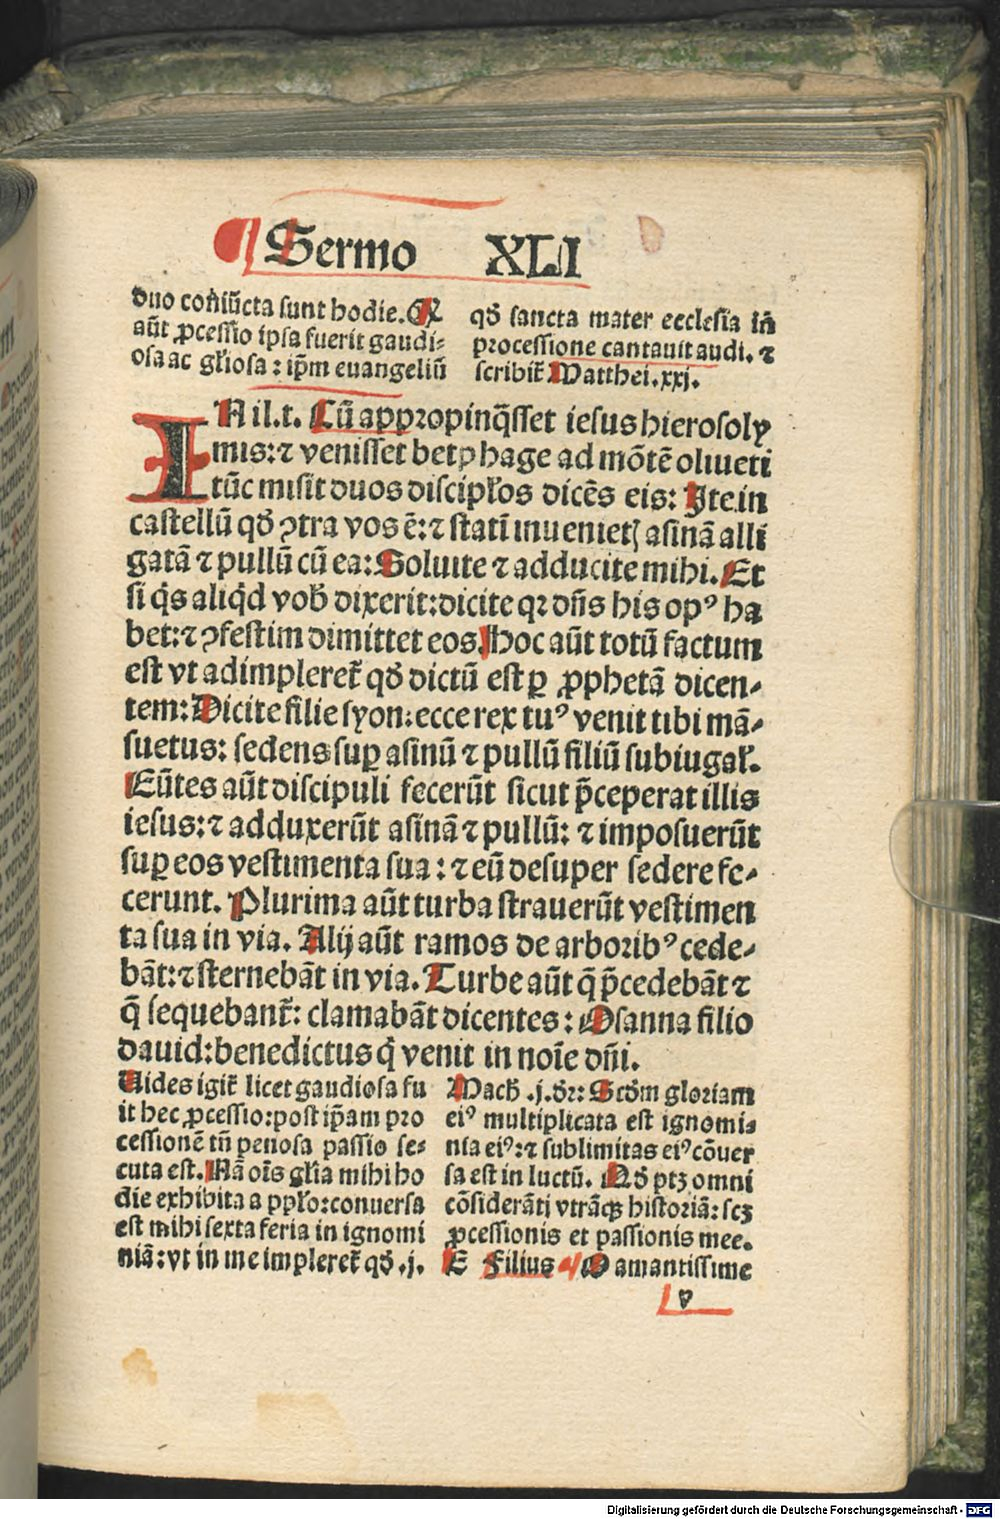 Sermo XLI
duo coniūcta sunt hodie. Et
aūt ꝓcessio ipsa fuerit gaudi⸗
osa ac gl̓iosa: ip̄m euangeliū
qđ sancta mater ecclesia in
processione cantauit audi. ⁊
scribit̃ Matthei. xxj.
IN il. t. Cū appropinq̄sset iesus hierosoly
mis: ⁊ venisset betphage ad mōtē oliueti
tūc misit duos discipl̓os dicēs eis: Ite in
castellū qđ ꝯtra vos ē: ⁊ statī inuenietꝭ asinā alli
gatā ⁊ pullū cū ea: Soluite ⁊ adducite mihi. Et
si q̇s aliq̇d vob̄ dixerit: dicite qꝛ dn̄s his opꝰ ha
bet: ⁊ ꝯfestim dimittet eos. Hoc aūt totū factum
est vt adimpleret̃ qđ dictū est ꝑ ꝓphetā dicen⸗
tem: Dicite filie syon: ecce rex tuꝰ venit tibi mā⸗
suetus: sedens suꝑ asinū ⁊ pullū filiū subiugal̓.
Eūtes aūt discipuli fecerūt sicut p̄ceperat illis
iesus: ⁊ adduxerūt asinā ⁊ pullū: ⁊ imposuerūt
suꝑ eos vestimenta sua: ⁊ eū desuper sedere fe⸗
cerunt. Plurima aūt turba strauerūt vestimen
ta sua in via. Alij aūt ramos de arboribꝰ cede⸗
bāt: ⁊ sternebāt in via. Turbe aūt q̄ p̄cedebāt ⁊
q̄ sequebant̃: clamabāt dicentes: Osanna filio
dauid: benedictus q̇ venit in noīe dn̄i.
Uides igit̃ licet gaudiosa fu
it hec ꝓcessio: post ip̄am pro
cessionē tn̄ penosa passio se⸗
cuta est. Nā oīs gl̓ia mihi ho
die exhibita a ppl̓o: conuersa
est mihi sexta feria in ignomi
niā: vt in me impleret̃ qđ .j.
Mach̄ .j. dr̄: Scđm gloriam
eiꝰ multiplicata est ignomi⸗
nia eiꝰ: ⁊ sublimitas eiꝰ cōuer
sa est in luctū. Qđ ptꝫ omni
cōsiderāti vtrāqꝫ historiā: scꝫ
ꝓcessionis et passionis mee.
E Filius O amantissime
v
Digitalisierung gefördert durch die Deutsche Forschungsgemeinschaft - DFG